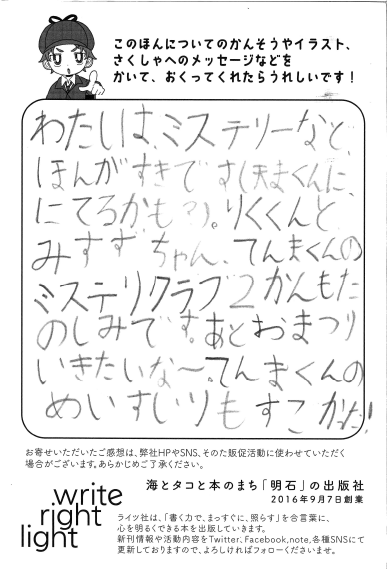 このほんについてのかんそうやイラスト、
さくしゃへのメッセージなどを
かいて、おくってくれたらうれしいです！
わたしは、ミステリーなど、
ほんがすきです(天まくんに、
にてるかも?)。りくくんと
みすずちゃん、てんまくんの
ミステリクラブ2かんもた
のしみです。あとおまつり
いきたいな〜。てんまくんの
めいすいりもすごかった!
お寄せいただいたご感想は、弊社HPやSNS、そのた販促活動に使わせていただく
場合がございます。あらかじめご了承ください。
海とタコと本のまち「明石」の出版社
2016年9月7日創業
write
right
light
ライツ社は、「書く力で、まっすぐに、照らす」を合言葉に、
心を明るくできる本を出版していきます。
新刊情報や活動内容をTwitter、Facebook、note、各種SNSにて
更新しておりますので、よろしければフォローくださいませ。